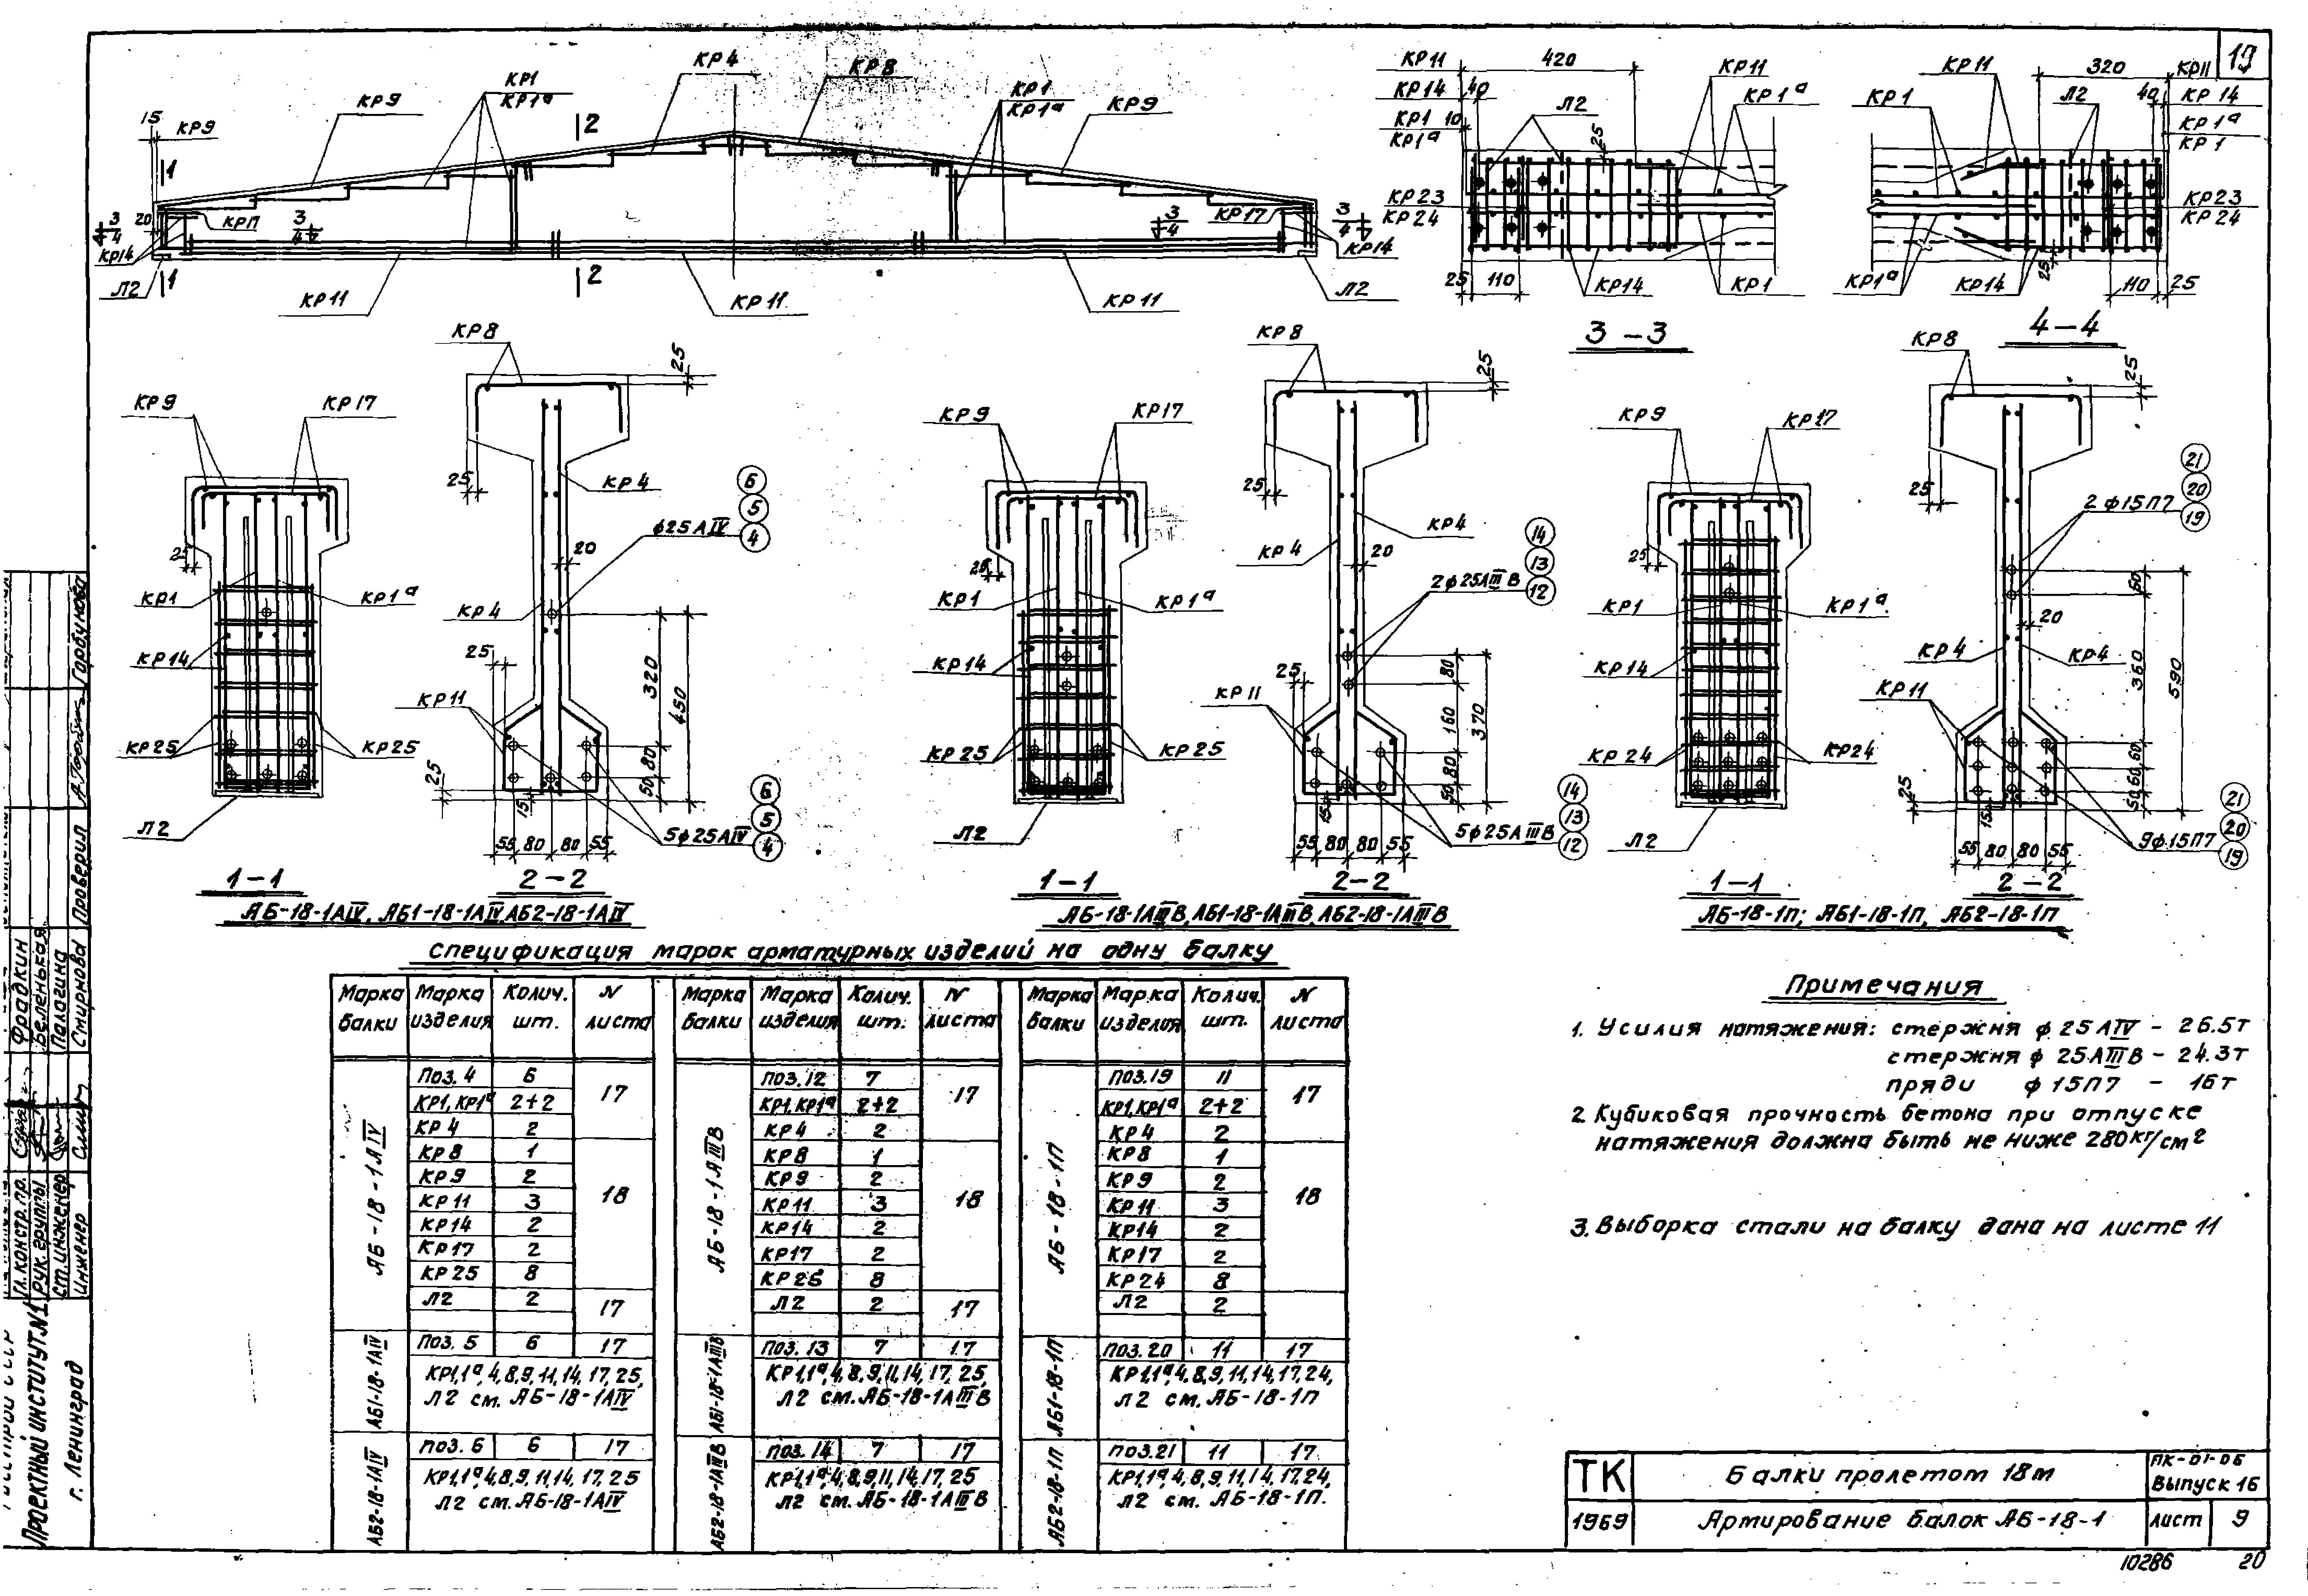 19
КР4
КР8
КР1
КР1а
КР1
КР1а
КР9
КР9
15
КР9
2
1
3
4
20
КР17
3
4
КР17
3
4
3
4
КР14
КР14
Л2
1
КР11
2
КР11
КР11
Л2
КР11
420
КР11
КР14
40
Л2
КР1а
КР1
10
КР1а
25
КР23
КР24
25
110
КР14
КР1
3-3
КР11
320
КР11
КР1
Л2
40
КР14
КР1а
КР1
КР23
КР24
КР1а
КР14
25
110
25
4-4
КР9
КР17
25
КР1
КР1а
КР14
КР25
КР25
Л2
1-1
КР8
25
25
КР4
6
5
4
ф25АIV
20
КР4
25
КР11
320
450
25
50
80
15
55
80
80
55
5ф25АIV
6
5
4
2-2
АБ-18-1АIV, АБ1-18-1АIV, АБ2-18-1АIV
КР9
КР17
25
КР1
КР1а
КР14
КР25
КР25
Л2
1-1
КР8
25
25
КР4
КР4
20
14
13
12
2ф25АIIIВ
25
КР11
80
160
370
50
80
15
55
80
80
55
5ф25АIIIВ
14
13
12
2-2
АБ-18-1АIIIВ, АБ1-18-1АIIIВ, АБ2-18-1АIIIВ
КР9
КР17
25
КР1
КР1а
КР14
КР24
КР24
Л2
1-1
КР8
25
25
21
20
19
2ф15П7
60
20
КР4
КР4
КР11
360
590
25
50
60
60
15
55
80
80
55
9ф15П7
21
20
19
2-2
АБ-18-1П; АБ1-18-1П, АБ2-18-1П
Спецификация марок арматурных изделий на одну балку
Марка балки Марка изделия Колич. шт. N листа
АБ-18-1АIV
Поз.4 6 17
КР1, КР1а 2+2
КР4 2
КР8 1 18
КР9 2
КР11 3
КР14 2
КР17 2
КР25 8
Л2 2 17
АБ1-18-1АIV
Поз.5 6 17
КР1,1а,4,8,9,11,14,17,25,
Л2 см. АБ-18-1АIV
АБ2-18-1АIV
Поз.6 6 17
КР1,1а,4,8,9,11,14,17,25
Л2 см. АБ-18-1АIV
Марка балки Марка изделия Колич. шт. N листа
АБ-18-1АIIIВ
Поз.12 7 17
КР1, КР1а 2+2
КР4 2
КР8 1 18
КР9 2
КР11 3
КР14 2
КР17 2
КР25 8
Л2 2 17
АБ1-18-1АIIIВ
Поз.13 7 17
КР1,1а,4,8,9,11,14,17,25,
Л2 см. АБ-18-1АIIIВ
АБ2-18-1АIIIВ
Поз.14 7 17
КР1,1а,4,8,9,11,14,17,25
Л2 см. АБ-18-1АIIIВ
Марка балки Марка изделия Колич. шт. N листа
АБ-18-1П
Поз.19 11 17
КР1, КР1а 2+2
КР4 2
КР8 1 18
КР9 2
КР11 3
КР14 2
КР17 2
КР24 8
Л2 2
АБ1-18-1П
Поз.20 11 17
КР1,1а,4,8,9,11,14,17,24,
Л2 см. АБ-18-1П
АБ2-18-1П
Поз.21 11 17
КР1,1а,4,8,9,11,14,17,24,
Л2 см. АБ-18-1П.
Примечания
1. Усилия натяжения: стержня ф25АIV - 26.5т
стержня ф25АIIIВ - 24.3т
пряди ф15П7 - 16т
2. Кубиковая прочность бетона при отпуске
натяжения должна быть не ниже 280кг/см2
3. Выборка стали на балку дана на листе 11
ТК
1969
Балки пролетом 18м
Армирование балок АБ-18-1
ПК-01-06
Выпуск 16
лист 9
10286 20
Горбунова
Проверил
Фрадкин
Беленькая
Палагина
Смирнова
Гл. констр. пр.
Рук. группы
Ст. инженер
Инженер
Проектный институт N1
г. Ленинград